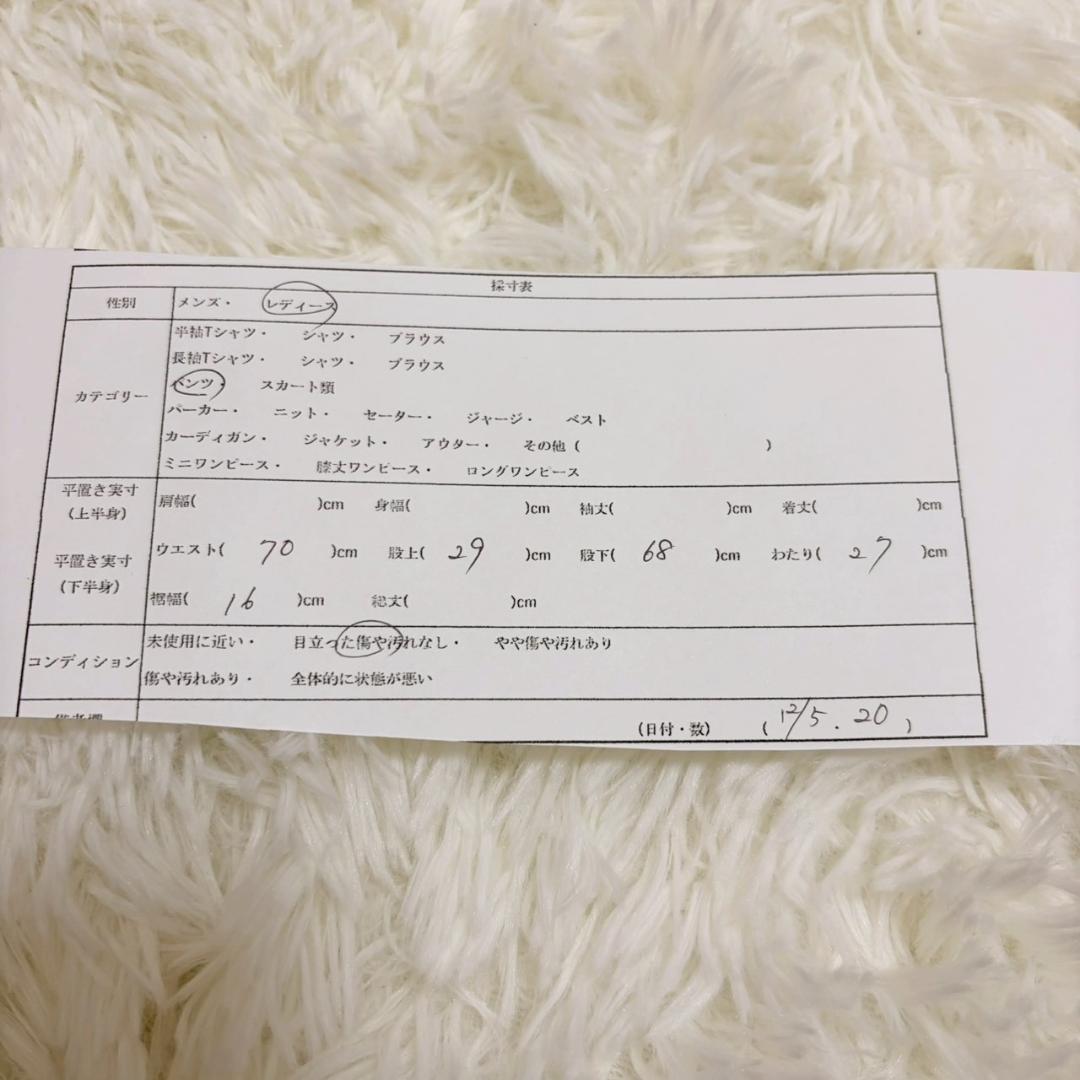 採寸表
性別 メンズ・ レディース
半袖Tシャツ・ シャツ・ ブラウス
長袖Tシャツ・ シャツ・ ブラウス
カテゴリー パンツ・ スカート類
パーカー・ ニット・ セーター・ ジャージ・ ベスト
カーディガン・ ジャケット・ アウター・ その他 ( )
ミニワンピース・ 膝丈ワンピース・ ロングワンピース
平置き実寸 (上半身) 肩幅( )cm 身幅( )cm 袖丈( )cm 着丈( )cm
平置き実寸 (下半身) ウエスト( 70 )cm 股上( 29 )cm 股下( 68 )cm わたり( 27 )cm
裾幅( 16 )cm 総丈( )cm
コンディション 未使用に近い・ 目立った傷や汚れなし・ やや傷や汚れあり
傷や汚れあり・ 全体的に状態が悪い
(日付・数) ( 12/5 . 20 )